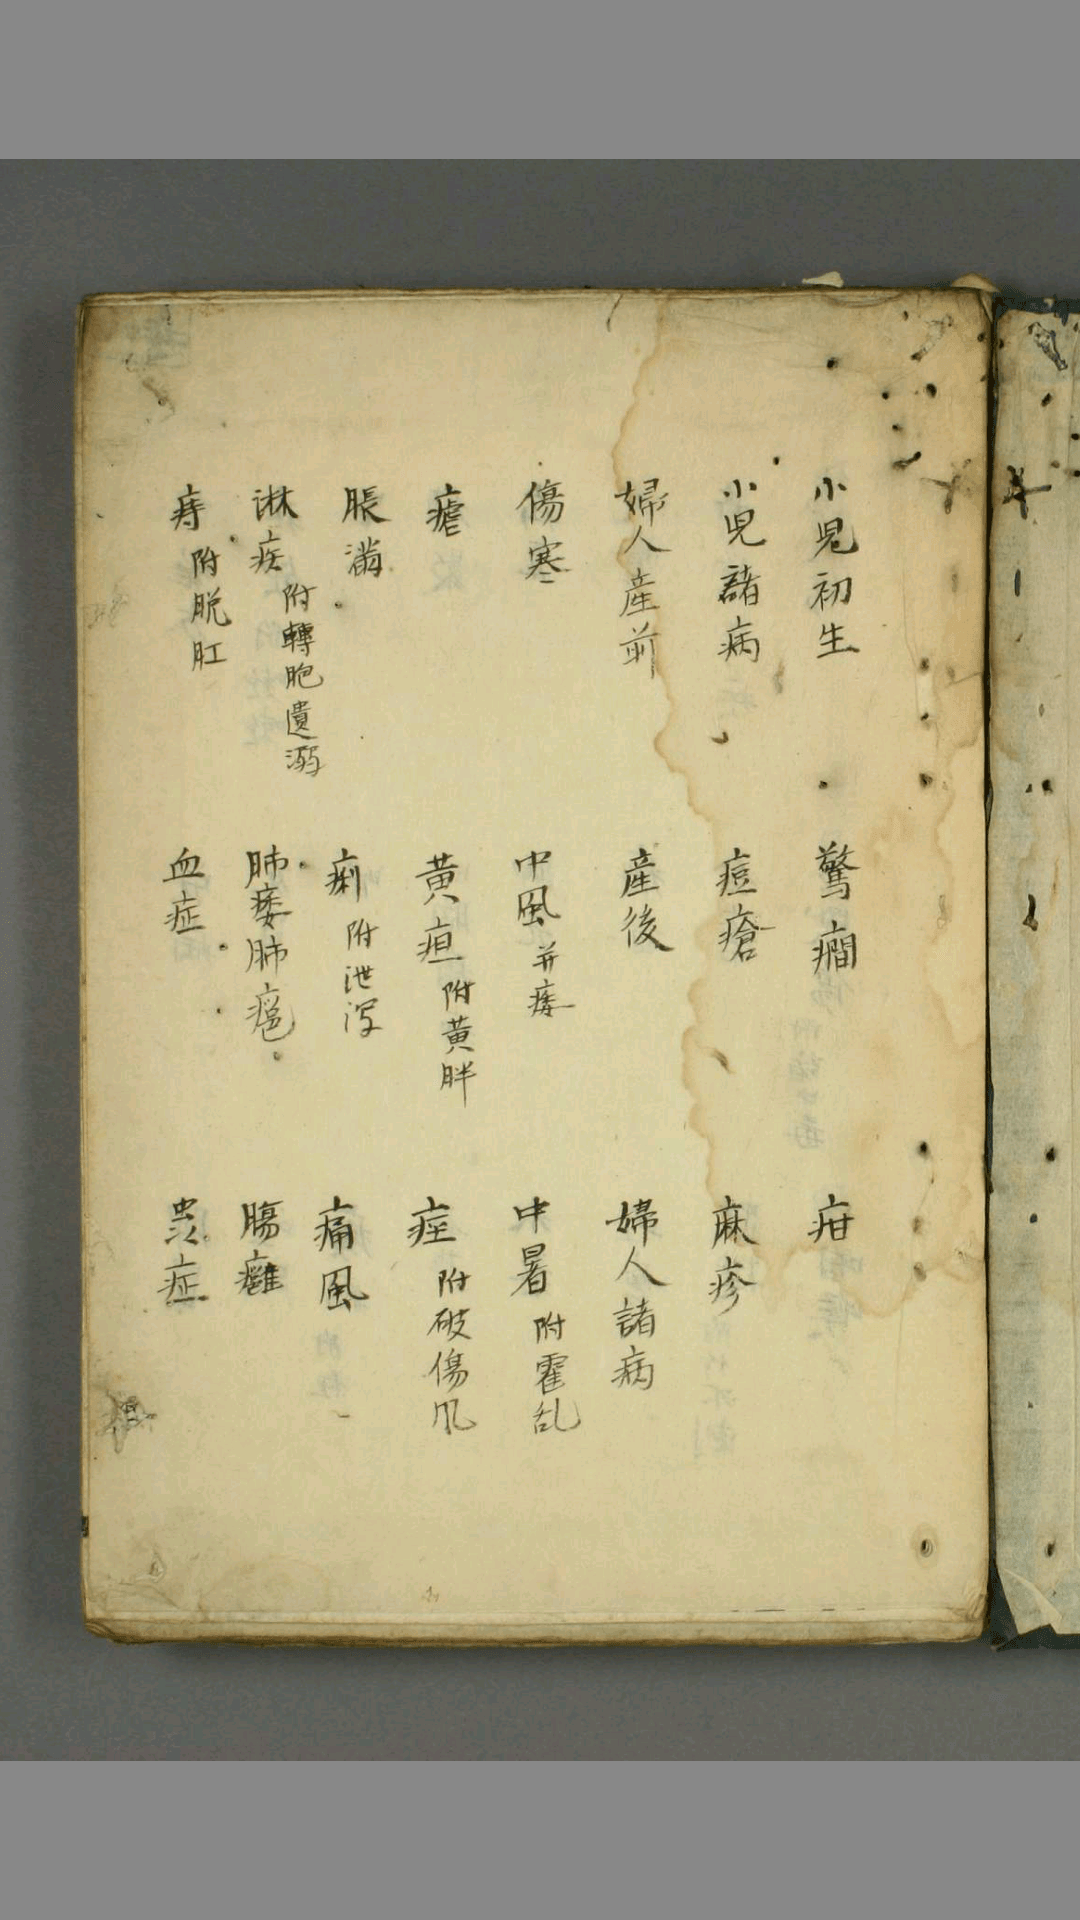 小児初生 驚癇 疳
小児諸病 痘瘡 麻疹
婦人産前 産後 婦人諸病
傷寒 中風 并痿 中暑 附霍乱
瘧 黄疸 附黄胖 痓 附破傷風
脹満 痢 附泄泻 痛風
淋疾 附轉胞遺溺 肺痿肺 腸癰
痔 附脱肛 血症 症